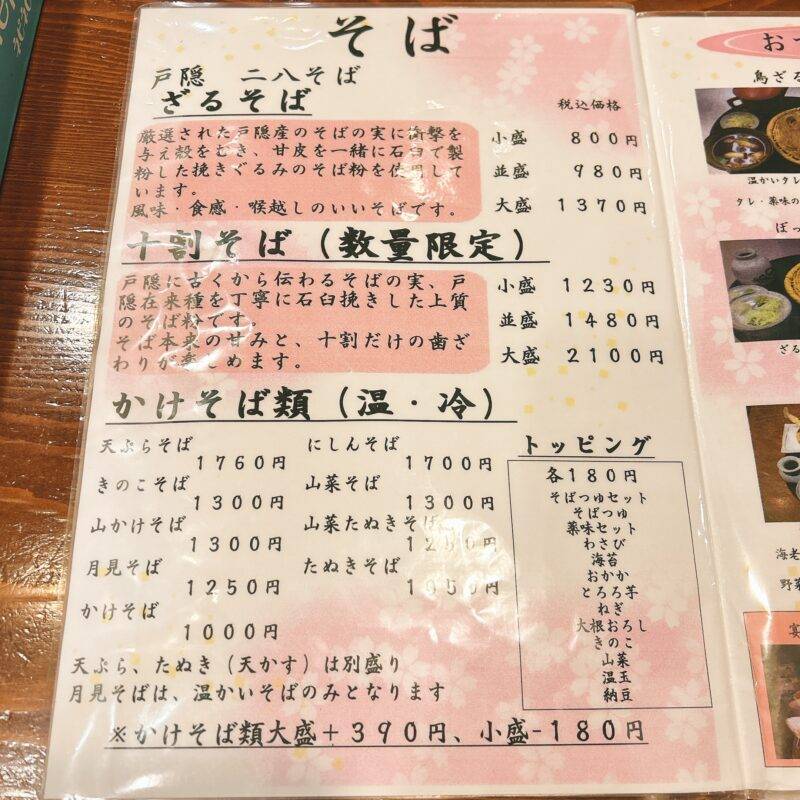 そば
戸隠 二八そば
ざるそば
税込価格
厳選された戸隠産のそばの実に衝撃を
与え殻をむき、甘皮を一緒に石臼で製
粉した挽きぐるみのそば粉を使用して
います。
風味・食感・喉越しのいいそばです。
小盛 800円
並盛 980円
大盛 1370円
十割そば(数量限定)
戸隠に古くから伝わるそばの実、戸
隠在来種を丁寧に石臼挽きした上質
のそば粉です。
そば本来の甘みと、十割だけの歯ざ
わりが楽しめます。
小盛 1230円
並盛 1480円
大盛 2100円
かけそば類(温・冷)
天ぷらそば
1760円
きのこそば
1300円
山かけそば
1300円
月見そば
1250円
かけそば
1000円
にしんそば
1700円
山菜そば
1300円
山菜たぬきそば
たぬきそば
1050円
トッピング
各180円
そばつゆセット
そばつゆ
薬味セット
わさび
海苔
おかか
とろろ芋
ねぎ
大根おろし
きのこ
山菜
温玉
納豆
天ぷら、たぬき(天かす)は別盛り
月見そばは、温かいそばのみとなります
※かけそば類大盛+390円、小盛-180円
お
鳥ざる
温かいタレ
タレ・薬味の
ぼっ
ざる
海老
野菜
宴